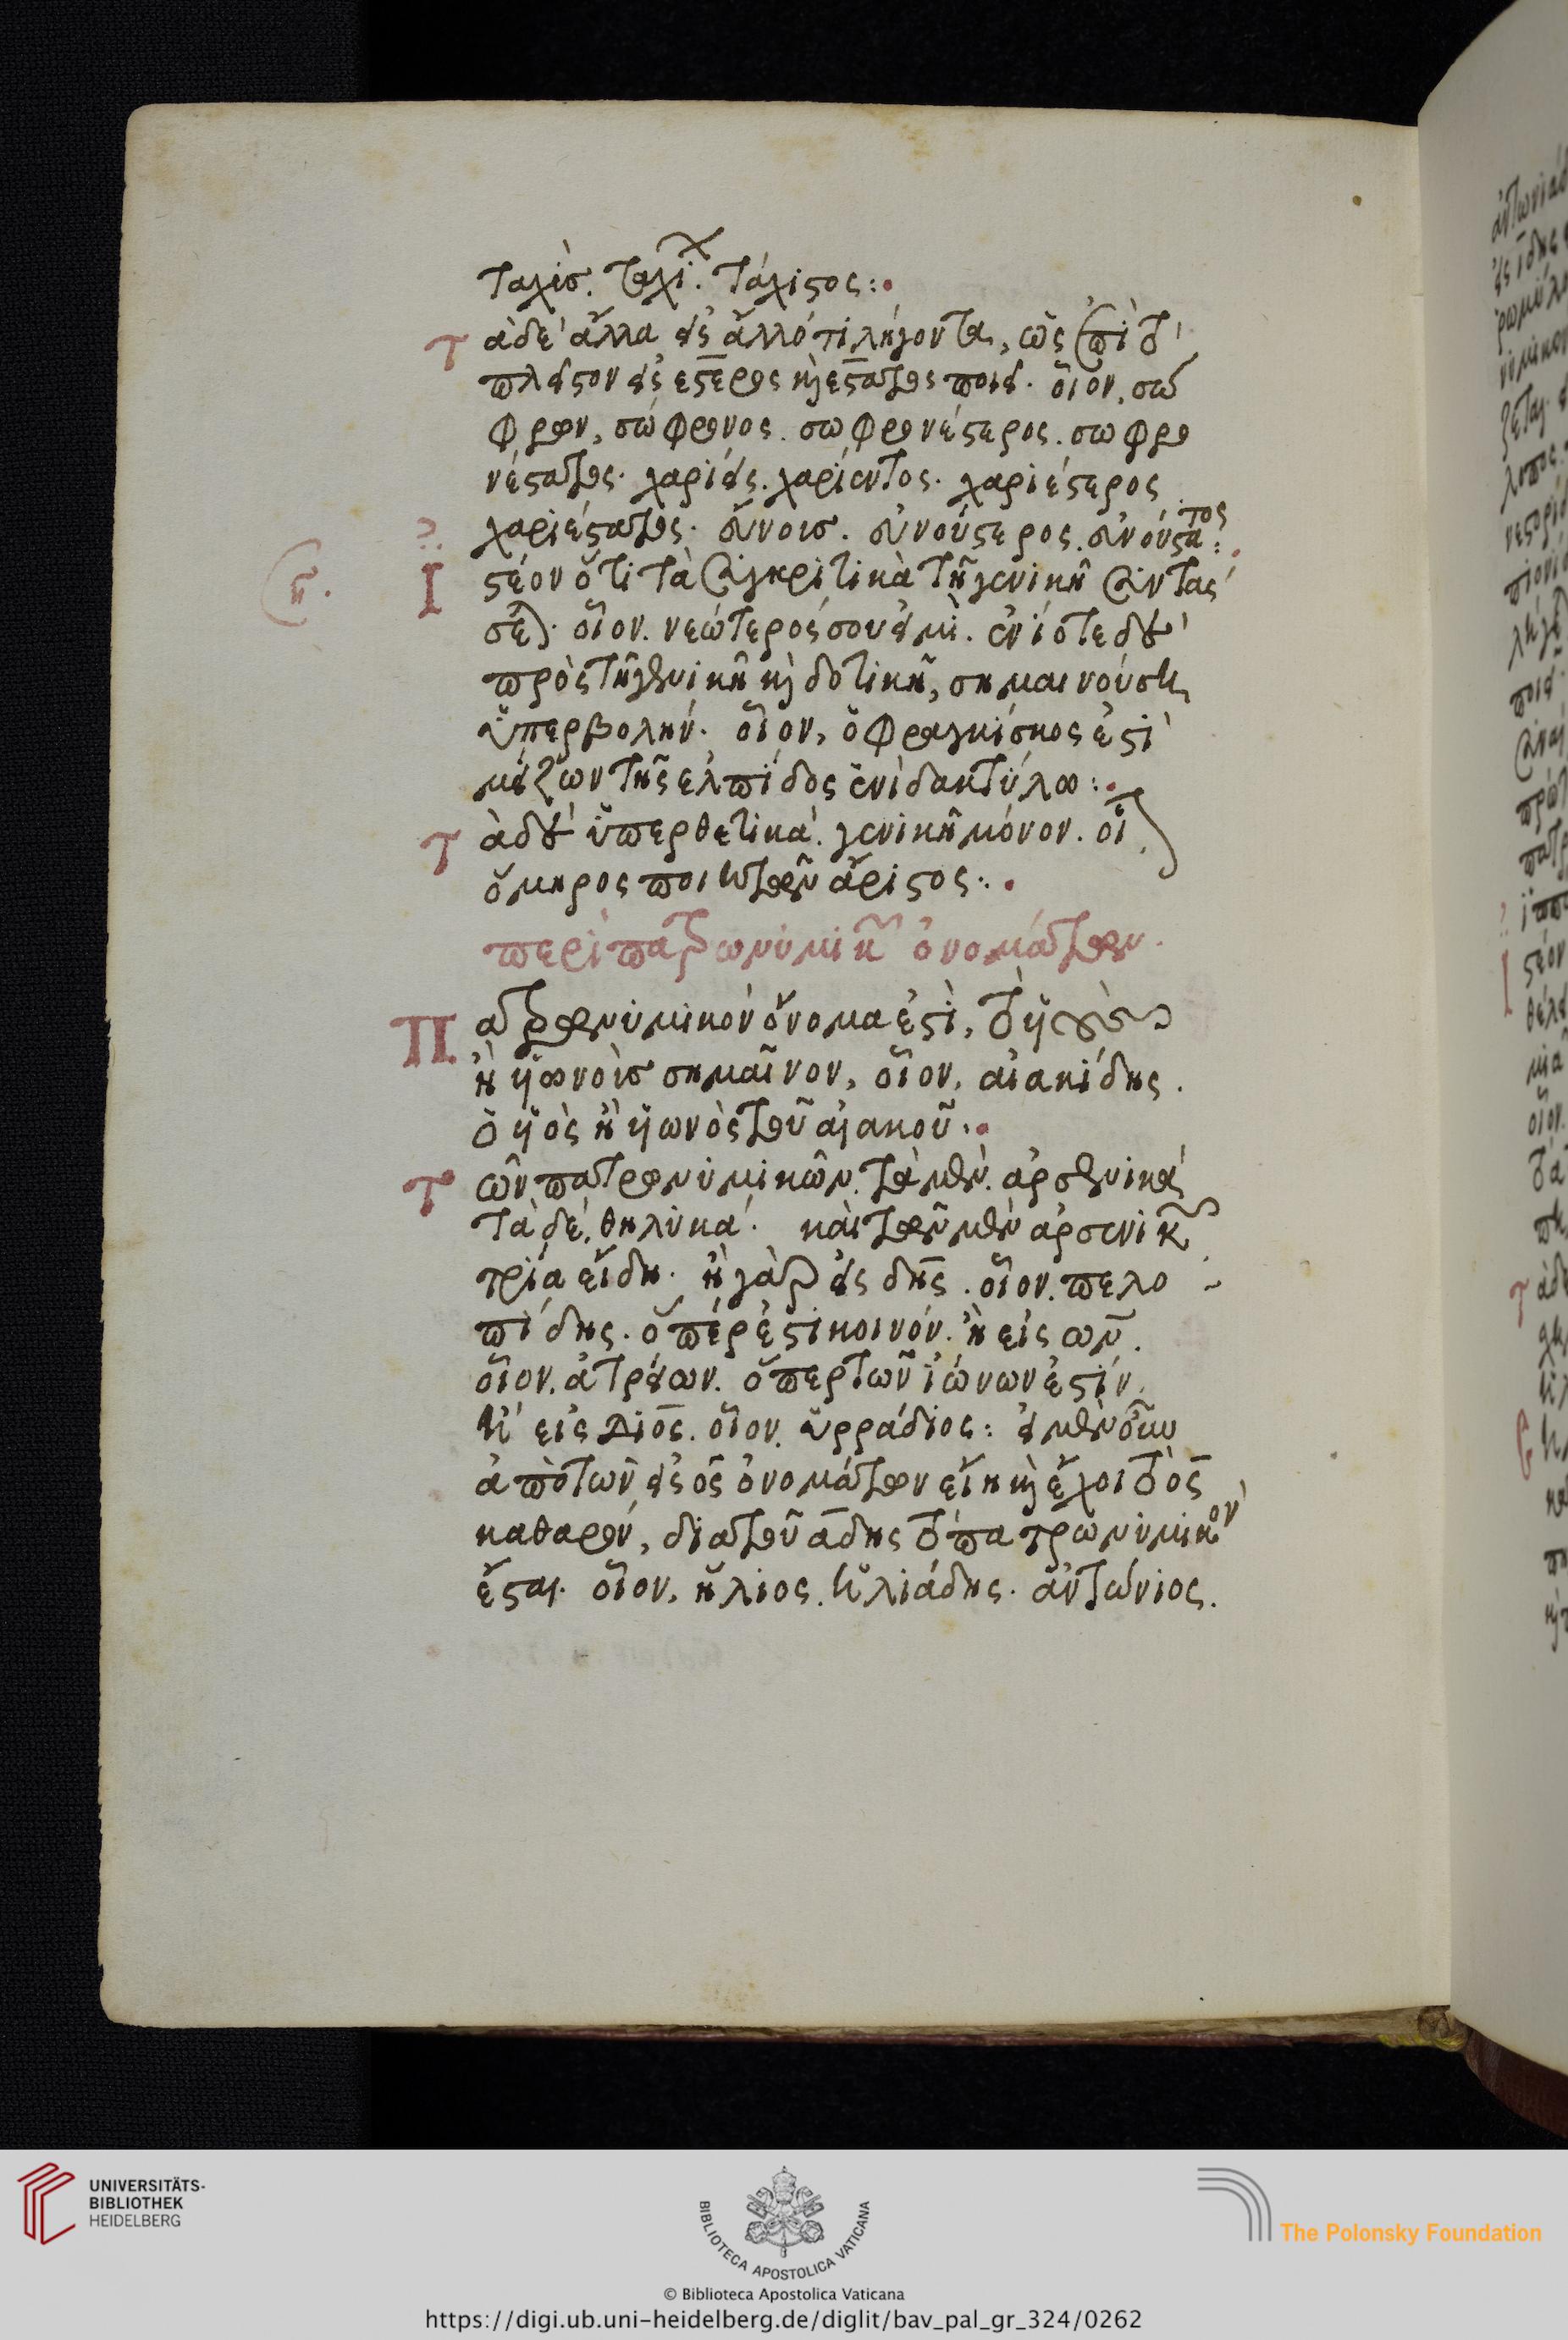 ταχὺσ. ταχίων. τάχιστος:
Τὰ δὲ ἄλλα εἰς ἄλλό τι λήγοντα, ὡς ἐπὶ τὸ
πλεῖστον εἰς εστερος καὶ εστατος ποιεῖ. οἷον, σώ
φρων, σώφρονος. σωφρονέστερος. σωφρο
νέστατος. χαρίεις. χαρίεντος. χαριέστερος
χαριέστατος. εὔνοισ. εὐνούστερος. εὐνούστατος:
Ἰστέον ὅτι τὰ συγκριτικὰ τῆ γενικῆ συντάσ
σεται. οἷον. νεώτερός σου εἰμὶ. ἐνίοτε δὲ
πρὸς τῆ γενικῆ καὶ δοτικῆ, σημαινούση
ὑπερβολήν. οἷον, ὁ φραγκίσκος ἐστὶ
μείζων τῆς ἐλπίδος ἑνὶ δακτύλω:
Τὰ δὲ ὑπερθετικὰ. γενικῆ μόνον. οἷον
ὅμηρος ποιητῶν ἄριστος:
περὶ πατρωνυμικῶν ὀνομάτων.
Πατρωνυμικὸν ὄνομα ἐστὶ, τὸ
ἢ ὑϊωνοὺσ σημαῖνον, οἷον, αἰακίδης.
ὁ ὑϊὸς ἢ ὑϊωνὸς τοῦ αἰακοῦ:
Τῶν πατρωνυμικῶν. τὰ μὲν. ἀρσενικὰ
τὰ δὲ. θηλυκά. καὶ τῶν μὲν ἀρσενικῶν
τρία εἴδη. ἢ γὰρ εἰς δης. οἷον. πελο
πίδης. ὅπέρ ἐστι κοινόν. ἢ εἰς ων.
οἷον. ἀτρείων. ὅπερ τῶν ἰώνων ἐστίν.
ἢ εἰς διος. οἷον. ὑρράδιος: εἰ μὲν οὖν
ἀπὸ τῶν εἰς ος ὀνομάτων εἴη καὶ ἔχοι τὸ ος
καθαρόν, διὰ τοῦ αδης τὸ πατρωνυμικὸν
ἔσται. οἷον, ἥλιος. ἡλιάδης. ἀντώνιος.
UNIVERSITÄTS-
BIBLIOTHEK
HEIDELBERG
BIBLIOTECA APOSTOLICA VATICANA
The Polonsky Foundation
© Biblioteca Apostolica Vaticana
https://digi.ub.uni-heidelberg.de/diglit/bav_pal_gr_324/0262